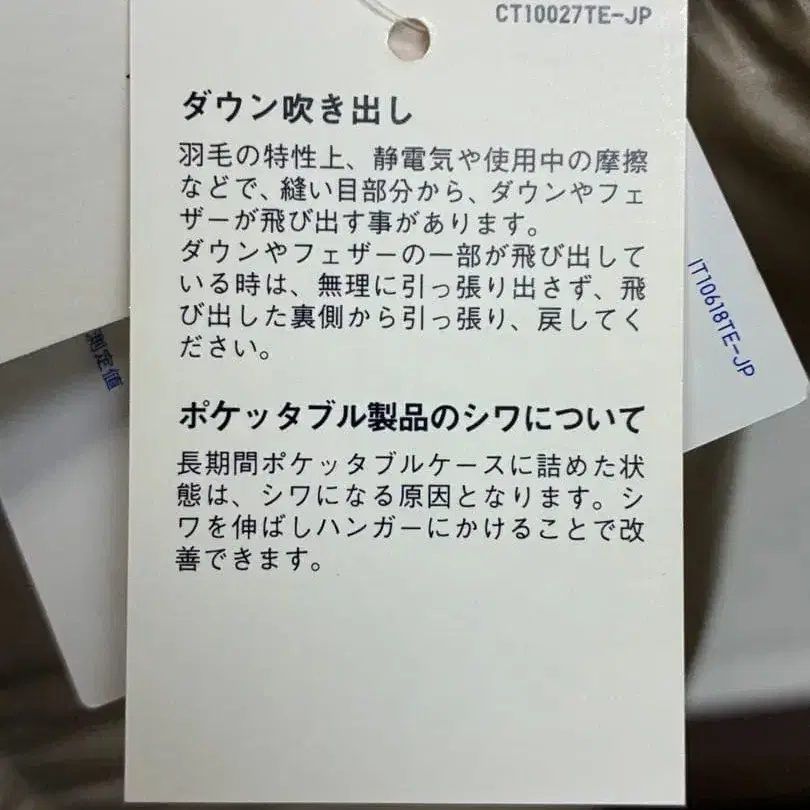 CT10027TE-JP
ダウン吹き出し
羽毛の特性上、静電気や使用中の摩擦
などで、縫い目部分から、ダウンやフェ
ザーが飛び出す事があります。
ダウンやフェザーの一部が飛び出して
いる時は、無理に引っ張り出さず、飛
び出した裏側から引っ張り、戻してく
ださい。
ポケッタブル製品のシワについて
長期間ポケッタブルケースに詰めた状
態は、シワになる原因となります。シ
ワを伸ばしハンガーにかけることで改
善できます。
IT10618TE-JP
測定値